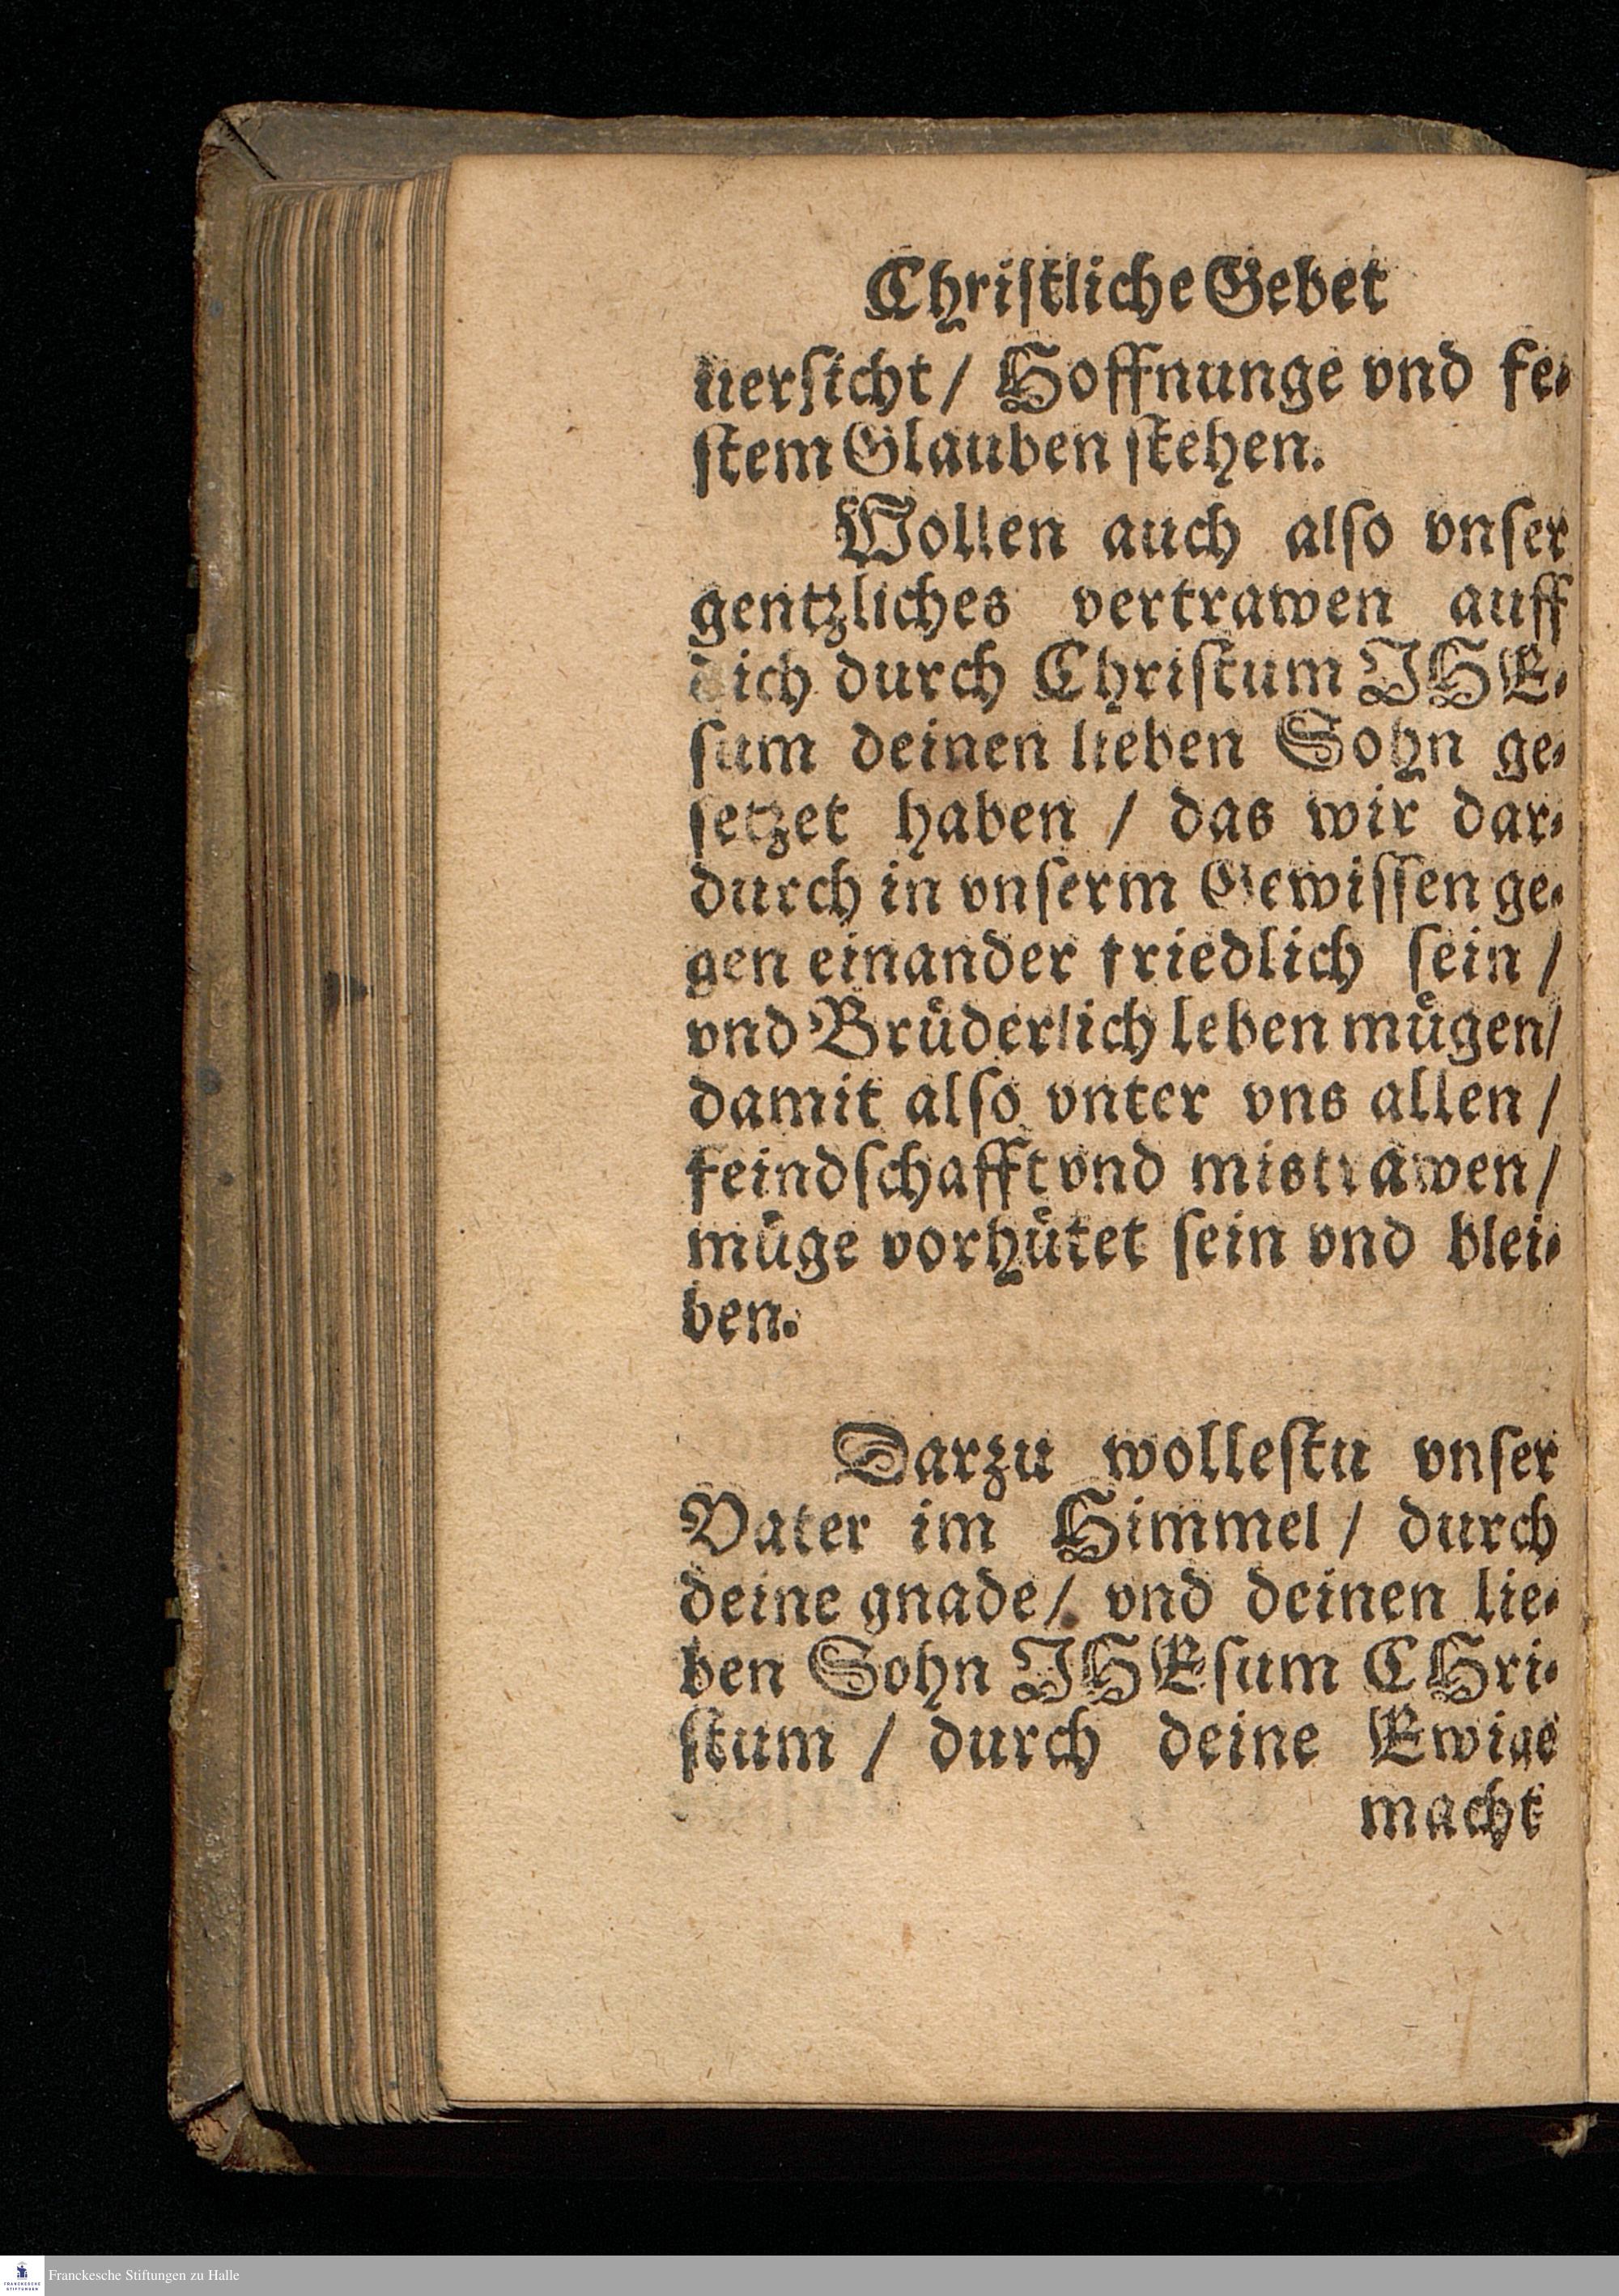 Christliche Gebet
uersicht / Hoffnunge vnd fe-
stem Glauben stehen.
Wollen auch also vnser
gentzliches vertrawen auff
dich durch Christum JHE-
sum deinen lieben Sohn ge-
setzet haben / das wir dar-
durch in vnserm Gewissen ge-
gen einander friedlich sein /
vnd Brüderlich leben mügen /
damit also vnter vns allen /
feindschafft vnd mistrawen /
müge vorhütet sein vnd blei-
ben.
Darzu wollestu vnser
Vater im Himmel / durch
deine gnade / vnd deinen lie-
ben Sohn JHEsum CHri-
stum / durch deine Ewige
macht
FRANCKESCHE
STIFTUNGEN
Franckesche Stiftungen zu Halle